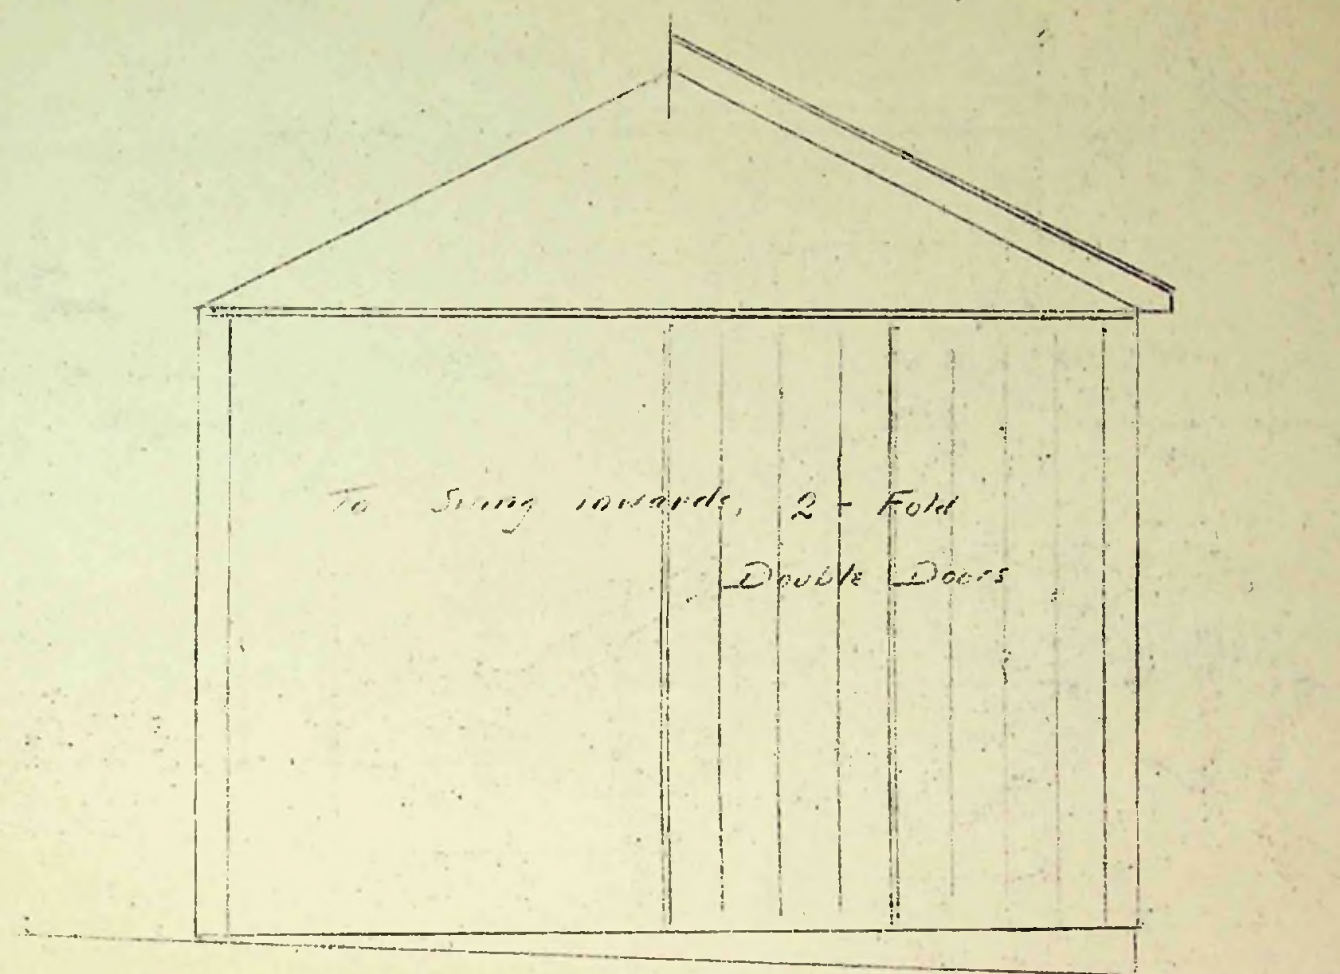 To Swing inwards, 2 - Fold
Double Doors